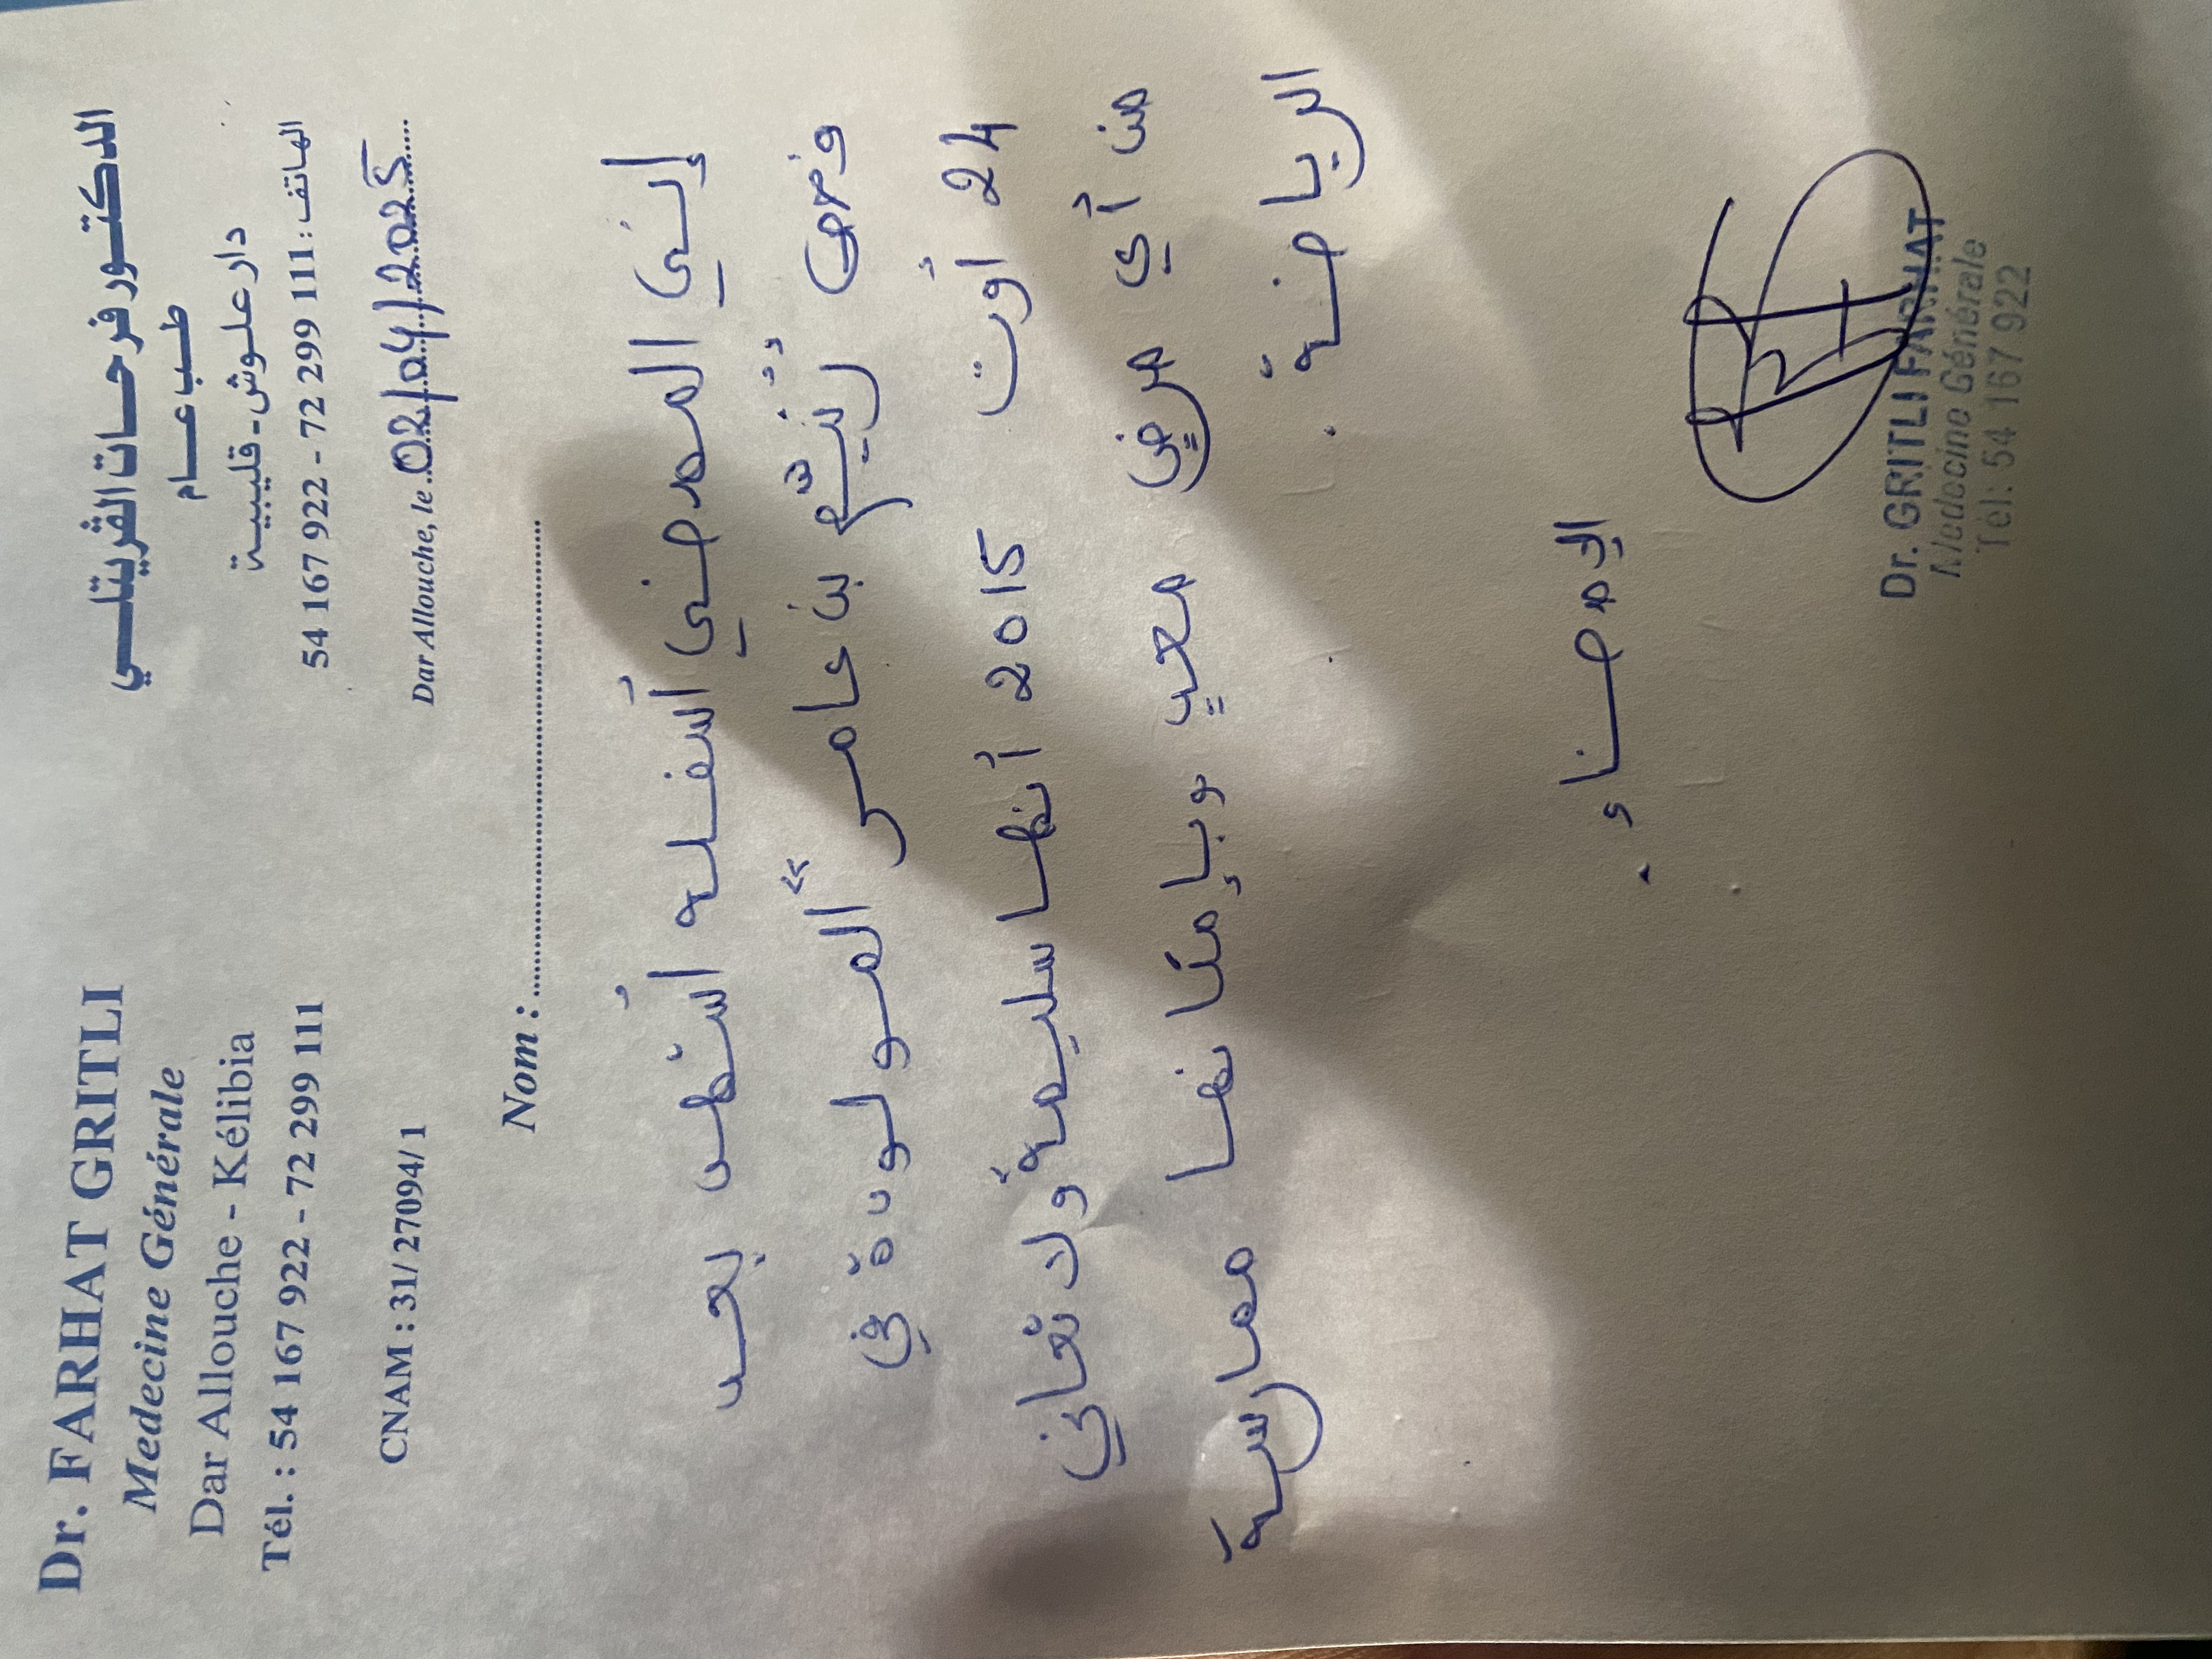 Dr. FARHAT GRITLI
Medecine Générale
Dar Allouche - Kélibia
Tél. : 54 167 922 - 72 299 111
CNAM : 31/ 27094/ 1
الدكتور فرحات الڨريتلي
طب عام
دار علوش - قليبية
الهاتف : 111 299 72 - 922 167 54
Dar Allouche, le 02/04/2025
Nom :
إنني الممضي أسفله أشهد بعد
فحص بن عامر "المولودة في
24 أوت 2015 أنها سليمة ولا تعاني
من أي مرض معين وبإمكانها ممارسة
الرياضة .
الإمضاء .
Dr. GRITLI FARHAT
Medecine Générale
Tél: 54 167 922